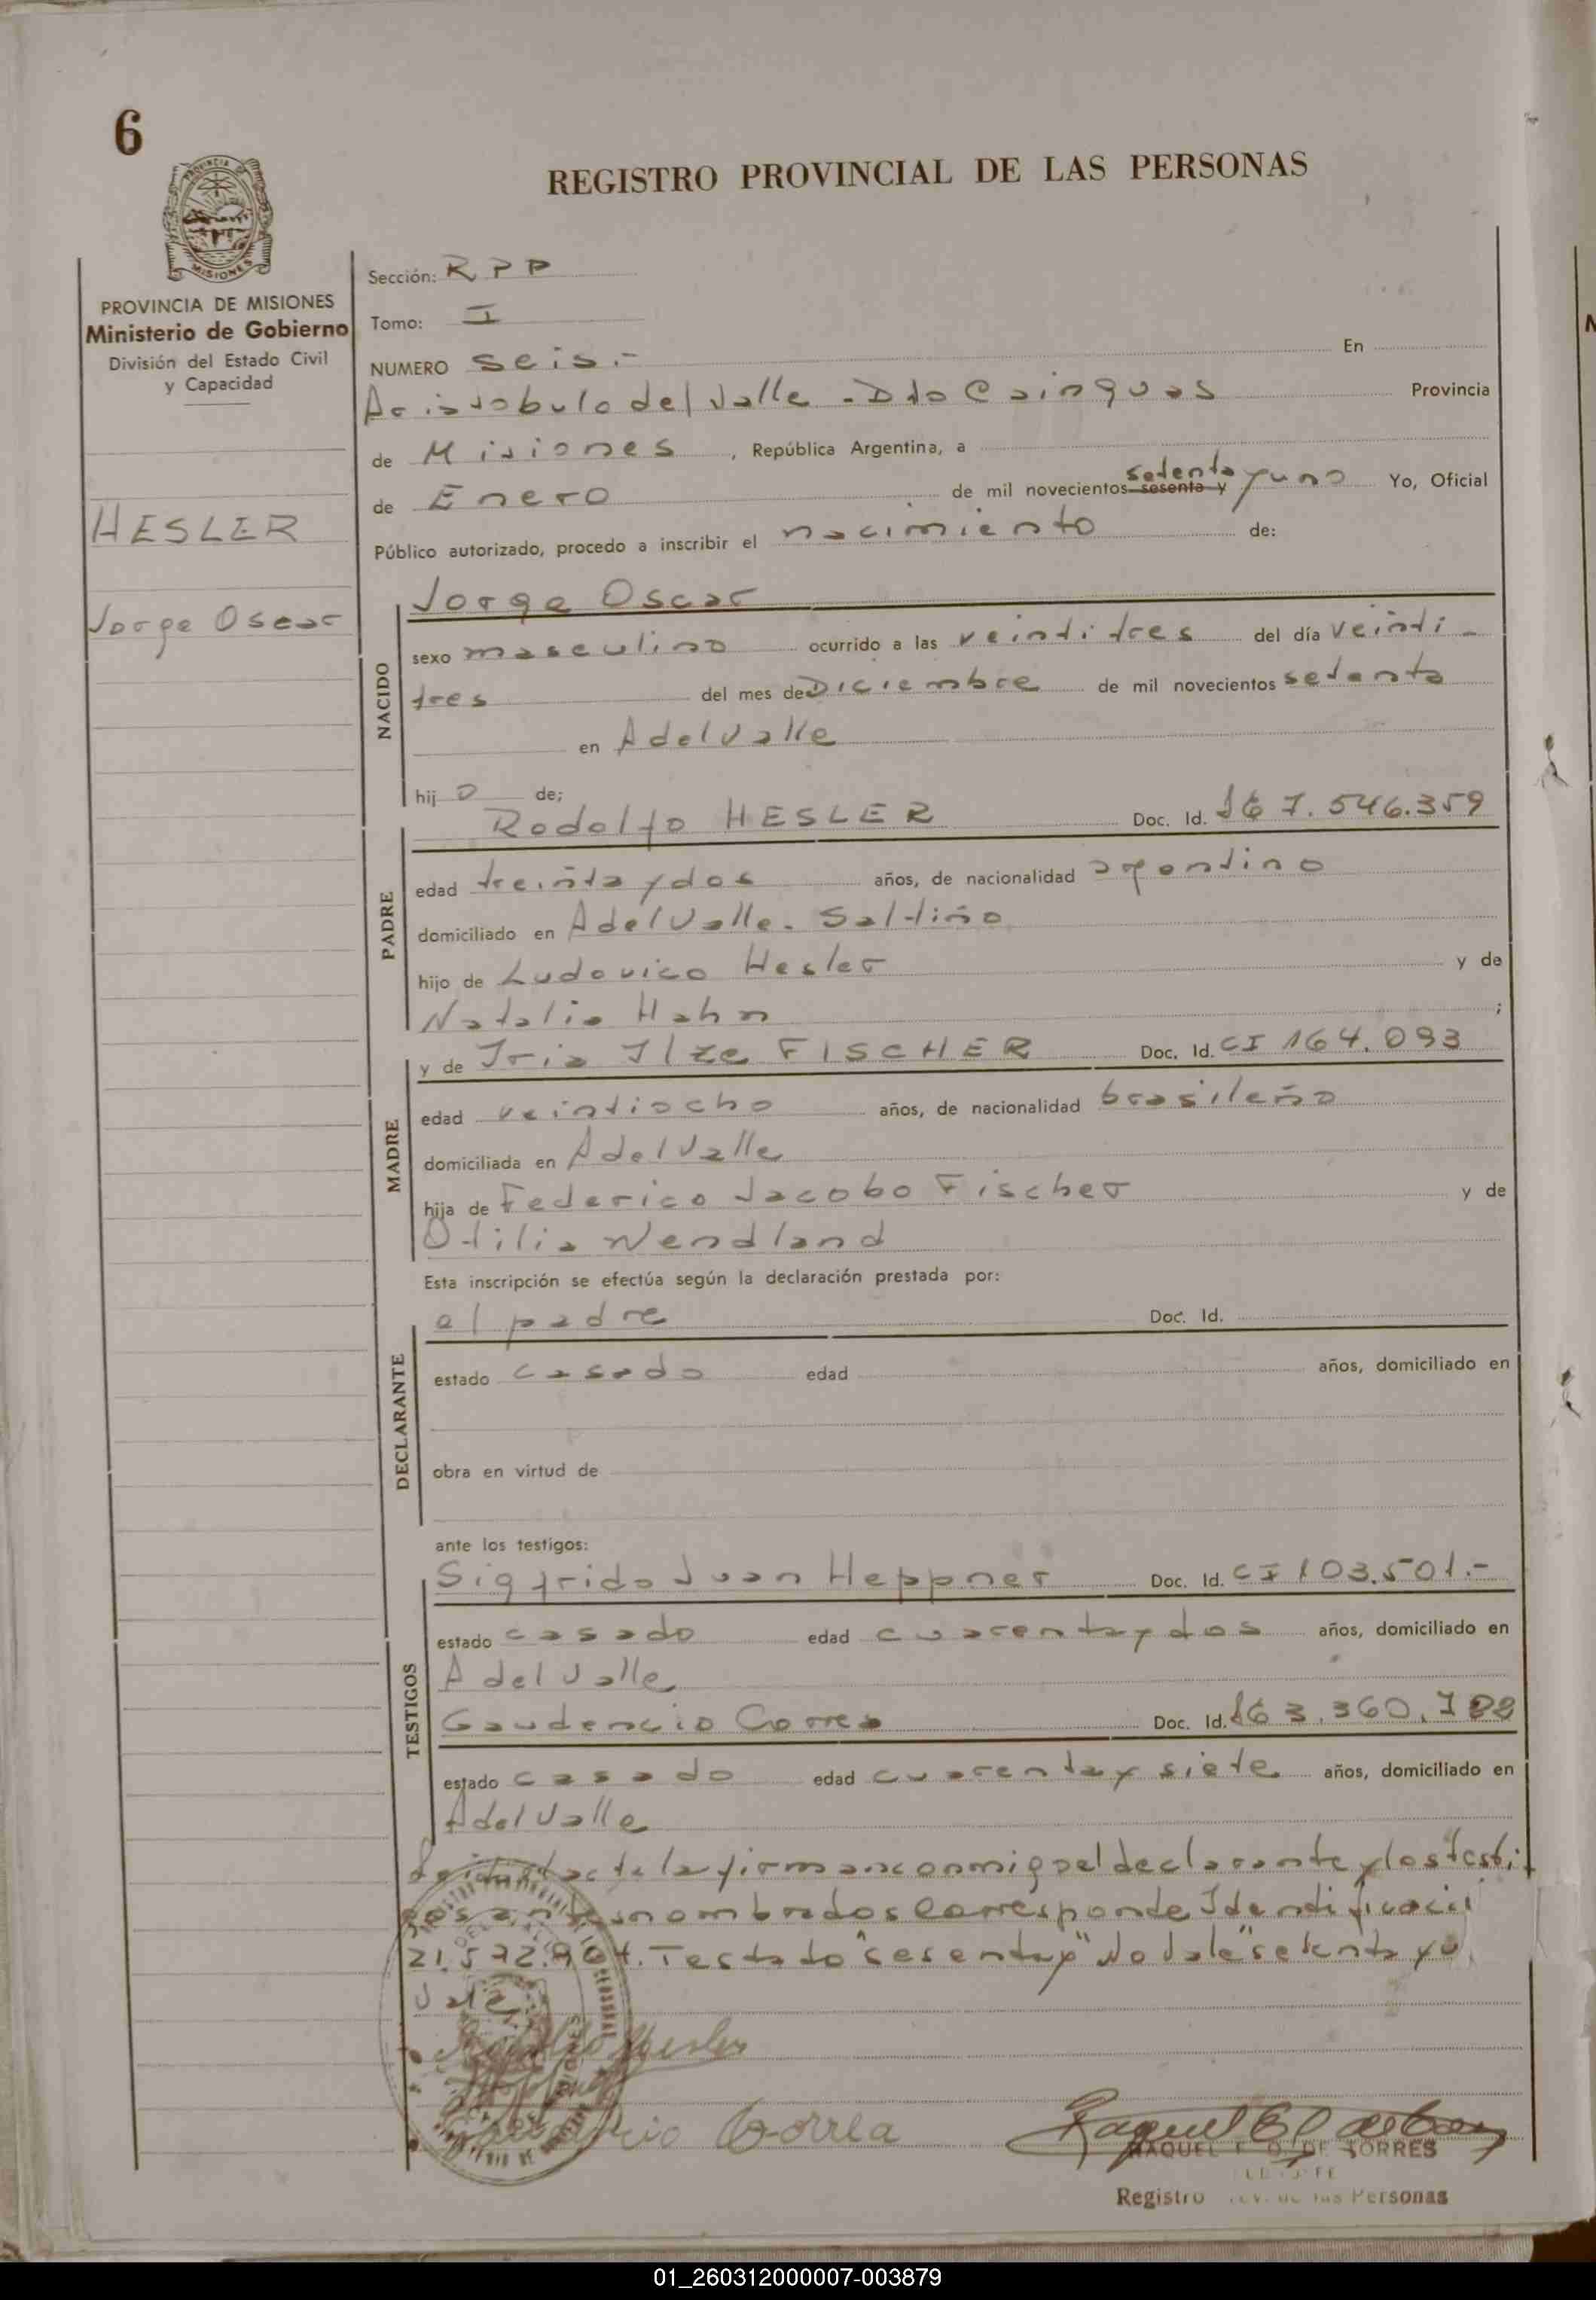 6
REGISTRO PROVINCIAL DE LAS PERSONAS
PROVINCIA DE MISIONES
Ministerio de Gobierno
División del Estado Civil
y Capacidad
HESLER
Jorge Oscar
Sección: RPP
Tomo: I
NUMERO seis.- En
Aristobulo del Valle - Dto Cainguas Provincia
de Misiones, República Argentina, a
de Enero de mil novecientos sesenta y setenta y uno Yo, Oficial
Público autorizado, procedo a inscribir el nacimiento de:
NACIDO
Jorge Oscar
sexo masculino ocurrido a las veintitres del día veinti-
tres del mes de Diciembre de mil novecientos setenta
en A del Valle
hijo de;
PADRE
Rodolfo HESLER Doc. Id. 7.546.359
edad treinta y dos años, de nacionalidad argentino
domiciliado en A del Valle. Saltiño
hijo de Ludovico Hesler y de
Natalia Hahn;
MADRE
y de Iria Ilze FISCHER Doc. Id. CI 164.093
edad veintiocho años, de nacionalidad brasileña
domiciliada en A del Valle
hija de Federico Jacobo Fischer y de
Otilia Wendland
Esta inscripción se efectúa según la declaración prestada por:
DECLARANTE
el padre Doc. Id.
estado casado edad años, domiciliado en
obra en virtud de
ante los testigos:
TESTIGOS
Sigfrido Juan Heppner Doc. Id. CI 103.501.-
estado casado edad cuarenta y dos años, domiciliado en
A del Valle
Gaudencio Correa Doc. Id. 3.360.
estado casado edad cuarenta y siete años, domiciliado en
A del Valle
acta la firman conmigo el declarante y los testi
nombrados Corresponde
Testado "sesenta y" No Vale "setenta y u
Vale
Hesler
Correa
RAQUEL E. O. DE TORRES
Registro de las Personas
01_260312000007-003879